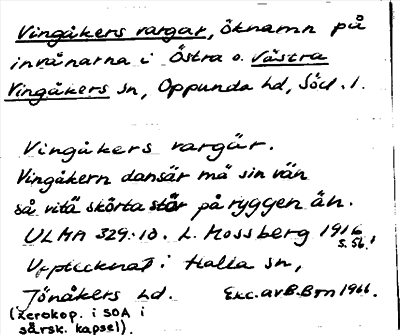 Vingåkers vargar, öknamn på
invånarna i Östra o. Västra
Vingåkers sn, Oppunda hd, Söd. l.
Vingåkers vargär.
Vingåkern dansär mä sin vän
så vitä skörta står på ryggen än.
ULMA 329:10. L. Mossberg 1916
s. 56.
Upptecknat i Halla sn,
Jönåkers hd. Exc. av B. Bm 1966.
(Xerokop. i SOA i
särsk. kapsel).